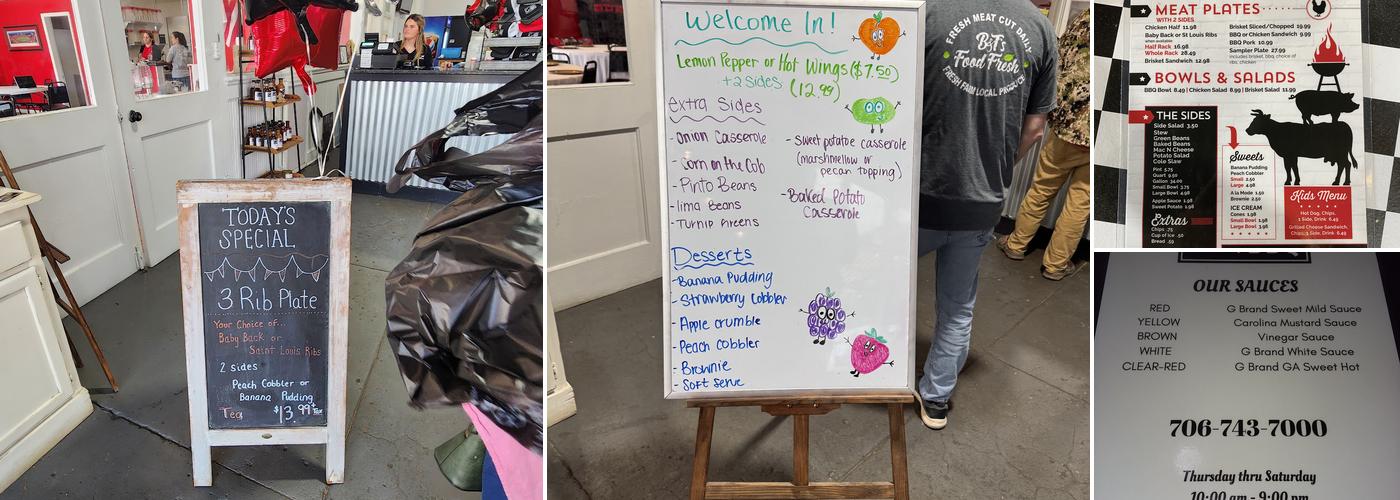 TODAY'S
SPECIAL
3 Rib Plate
Your Choice of...
Baby Back or
Saint Louis Ribs
2 sides
Peach Cobbler or
Banana Pudding
Tea $13.99 + Tax
Welcome In!
Lemon Pepper or Hot Wings ($7.50)
+2 sides (12.99)
Extra Sides
-Onion Casserole
-Corn on the Cob
-Pinto Beans
-lima Beans
-Turnip Greens
-Sweet potatoe casserole
(marshmellow or
pecan topping)
-Baked Potato
Casserole
Desserts
-Banana Pudding
-Strawberry Cobbler
-Apple crumble
-Peach Cobbler
-Brownie
-Soft serve
FRESH MEAT CUT DAILY
B&T's
Food Fresh
FRESH FARM LOCAL PRODUCE
MEAT PLATES
WITH 2 SIDES
Chicken Half 11.98
Baby Back or St Louis Ribs
when available
Half Rack 16.98
Whole Rack 28.49
Brisket Sandwich 12.98
Brisket Sliced/Chopped 19.99
BBQ or Chicken Sandwich 9.99
BBQ Pork 10.99
Sampler Plate 27.99
includes brisket, bbq, choice of
ribs, chicken
BOWLS & SALADS
BBQ Bowl 8.49 | Chicken Salad 8.99 | Brisket Salad 11.99
THE SIDES
Side Salad 3.50
Stew
Green Beans
Baked Beans
Mac N Cheese
Potato Salad
Cole Slaw
Pint 5.75
Quart 9.50
Gallon 34.00
Small Bowl 3.75
Large Bowl 4.98
Apple Sauce 1.98
Sweet Potato 1.98
Extras
Chips .75
Cup of Ice .50
Bread .59
Sweets
Banana Pudding
Peach Cobbler
Small 2.50
Large 4.98
A la Mode 1.50
Brownie 2.50
ICE CREAM
Cones 1.98
Small Bowl 1.98
Large Bowl 3.96
Kids Menu
Hot Dog, Chips,
1 Side, Drink 6.49
Grilled Cheese Sandwich,
Chips, 1 Side, Drink 6.49
OUR SAUCES
RED G Brand Sweet Mild Sauce
YELLOW Carolina Mustard Sauce
BROWN Vinegar Sauce
WHITE G Brand White Sauce
CLEAR-RED G Brand GA Sweet Hot
706-743-7000
Thursday thru Saturday
10:00 am - 9:00 pm